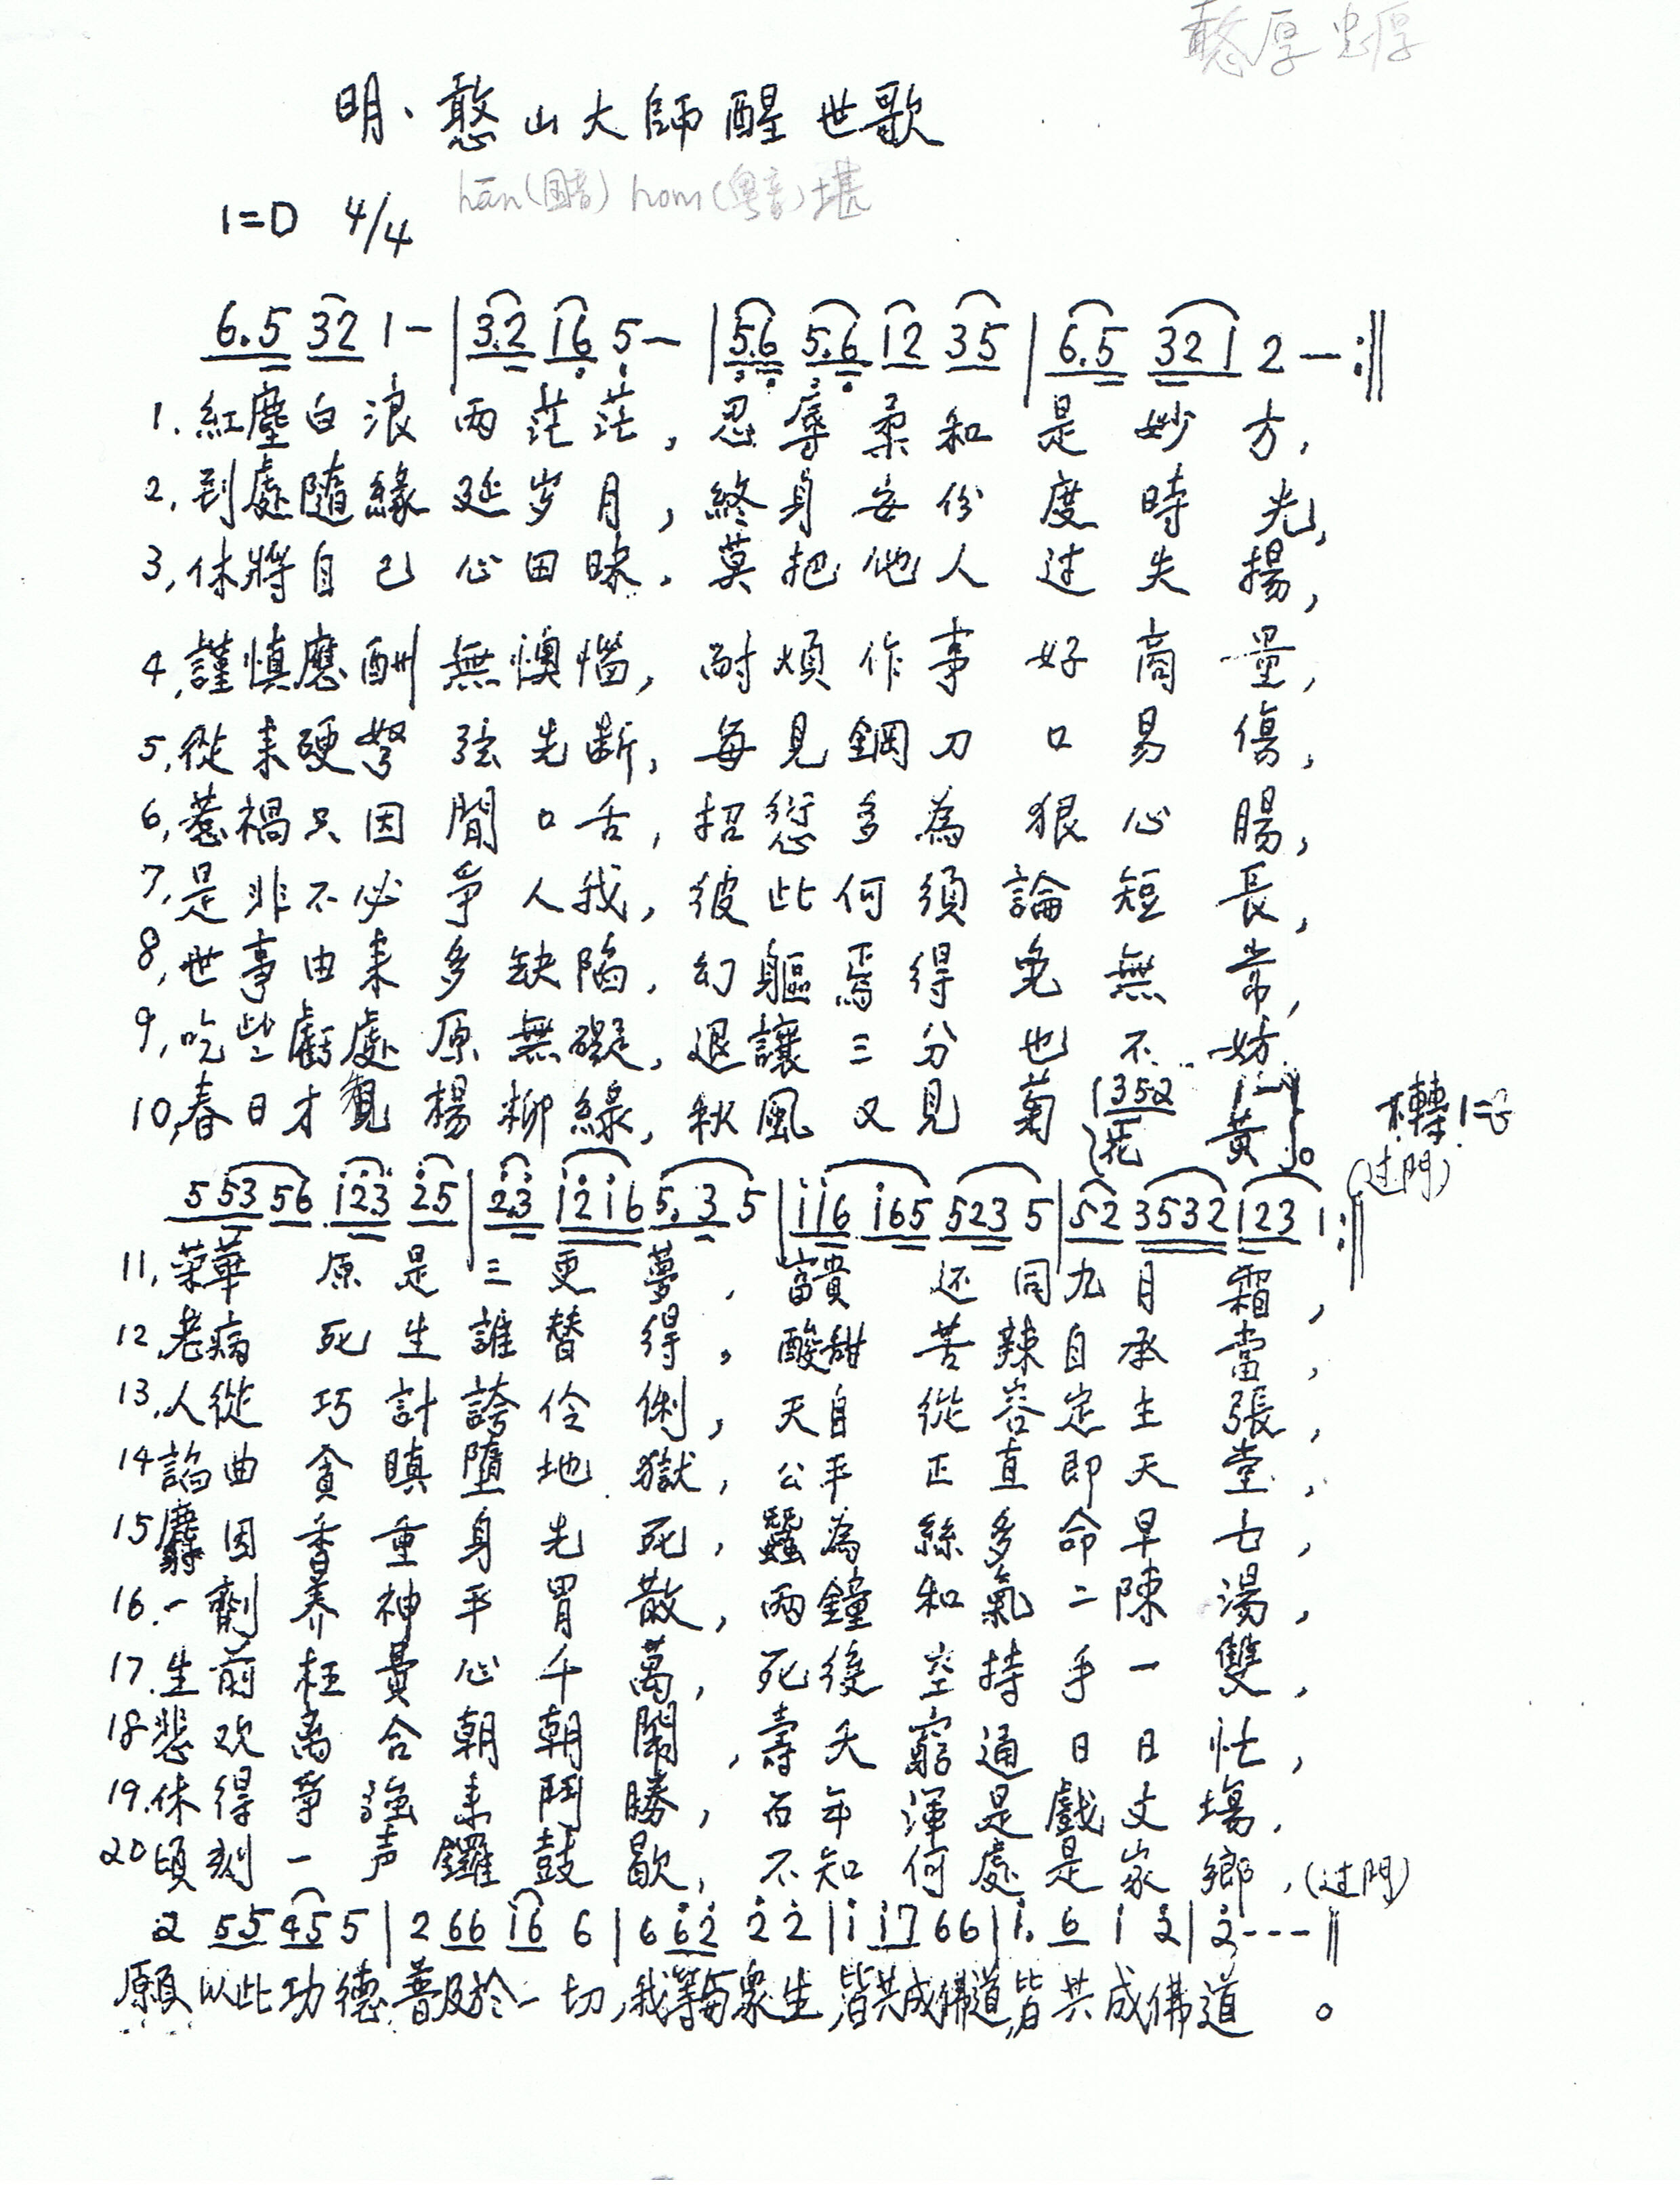 憨厚忠厚
明、憨山大師醒世歌
hān(国音) hom(粵音)堪
1=D 4/4
6.5 32 1－|3.2 16 5－|5.6 5.6 12 35|6.5 321 2－:||
1.紅塵白浪兩茫茫,忍辱柔和是妙方,
2,到處隨緣延岁月,終身安份度時光,
3,休將自己心田昧,莫把他人过失揚,
4,謹慎應酬無懊惱,耐煩作事好商量,
5,從来硬弩弦先断,每見鋼刀口易傷,
6,惹禍只因閒口舌,招愆多為狠心腸,
7,是非不必爭人我,彼此何須論短長,
8,世事由来多缺陷,幻軀焉得免無常,
9,吃些虧處原無礙,退讓三分也不妨.
10,春日才覩楊柳綠,秋風又見菊花黃。
1352 1－
轉1=
(过門)
5 53 56 i23 25|2.3 i2i6 5.3 5|ii6 i65 523 5|52 3532 123 1:||
11,荣華原是三更夢,富貴还同九月霜,
12,老病死生誰替得,酸甜苦辣自承當,
13,人從巧計誇伶俐,天自從容定主張,
14諂曲貪瞋墮地獄,公平正直即天堂,
15麝因香重身先死,蠶為絲多命早亡,
16.一劑养神平胃散,兩鐘和氣二陳湯,
17.生前枉費心千萬,死後空持手一雙,
18悲欢离合朝朝鬧,壽夭窮通日日忙,
19.休得爭強来鬥勝,百年渾是戲文場.
20頃刻一声鑼鼓歇,不知何處是家鄉.(过門)
2 55 45 5|2 66 i6 6|6 62 2 2|i i7 66|i. 6 1 2|2---||
願以此功德,普及於一切,我等與眾生,皆共成佛道,皆共成佛道。